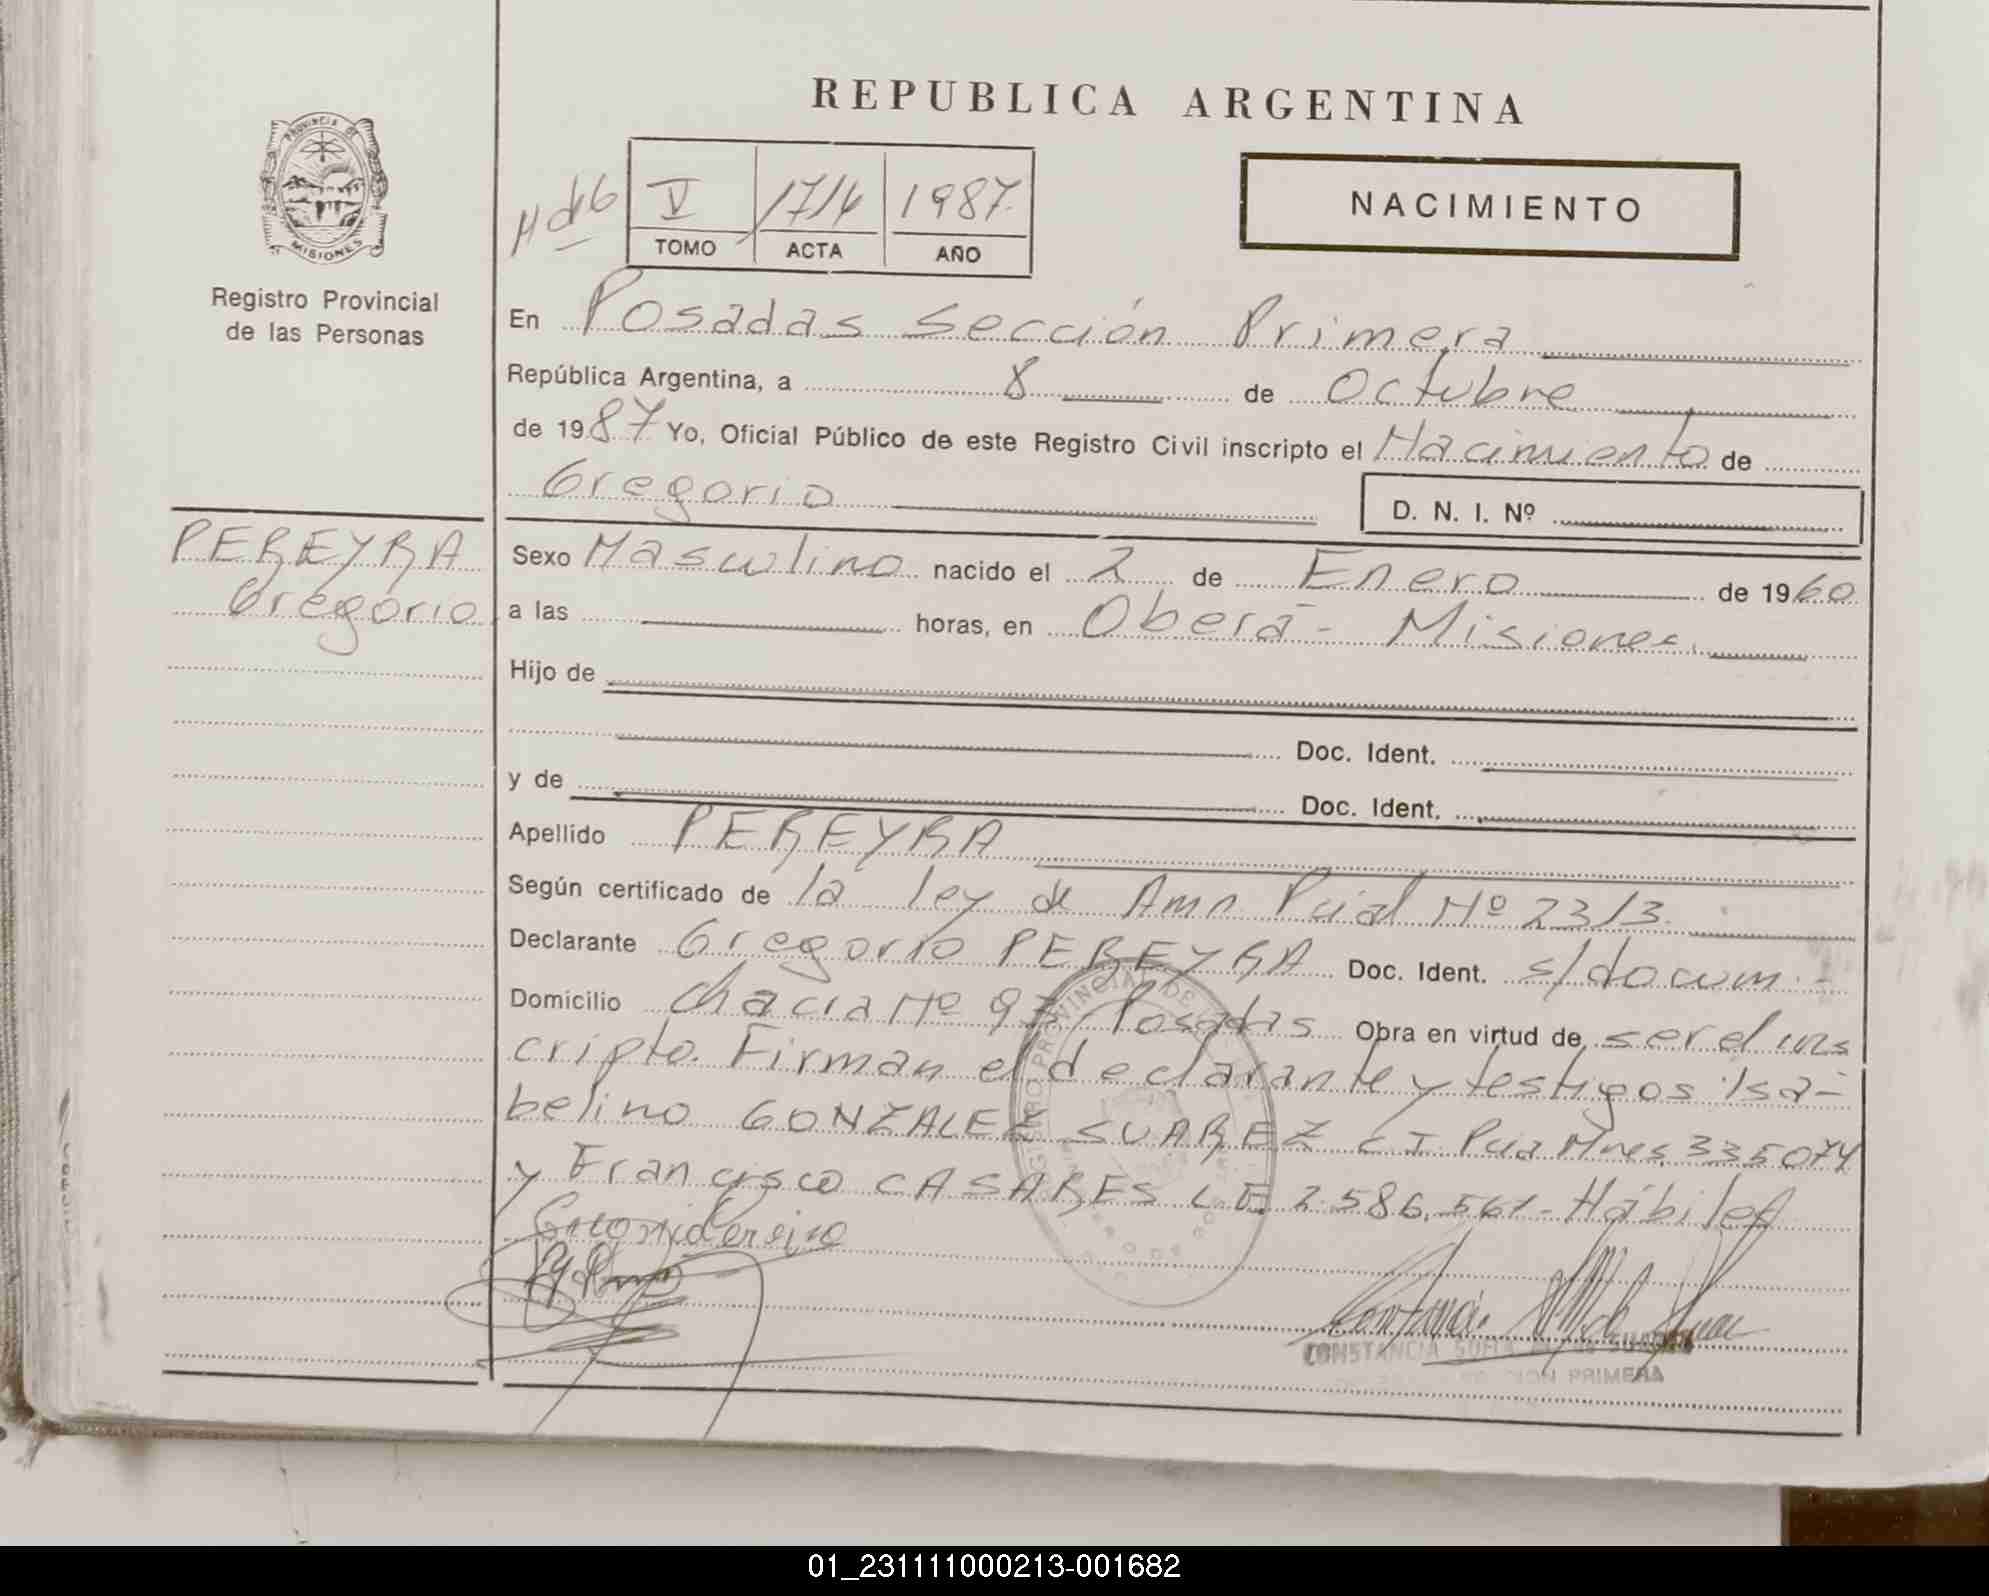 REPUBLICA ARGENTINA
PROVINCIA DE
MISIONES
Registro Provincial
de las Personas
V 1714 1987.
TOMO ACTA AÑO
NACIMIENTO
En Posadas Sección Primera
República Argentina, a 8 de Octubre
de 1987 Yo, Oficial Público de este Registro Civil inscripto el Nacimiento de
Gregorio
D. N. I. Nº
PEREYRA
Gregorio
Sexo Masculino nacido el 2 de Enero de 1960
a las horas, en Oberá - Misiones.
Hijo de
Doc. Ident.
y de Doc. Ident.
Apellido PEREYRA
Según certificado de la ley de Amn Pcial Nº 2313.
Declarante Gregorio PEREYRA Doc. Ident. s/docum.-
Domicilio Chacra Nº 97 Posadas Obra en virtud de ser el ins
cripto. Firman el declarante y testigos Isa-
belino GONZALEZ SUAREZ CI Pcia Mnes 335074
y Francisco CASARES LE 2.586.561 - Hábiles
CONSTANCIA SOFIA M. de SUAREZ
PRIMERA
01_231111000213-001682